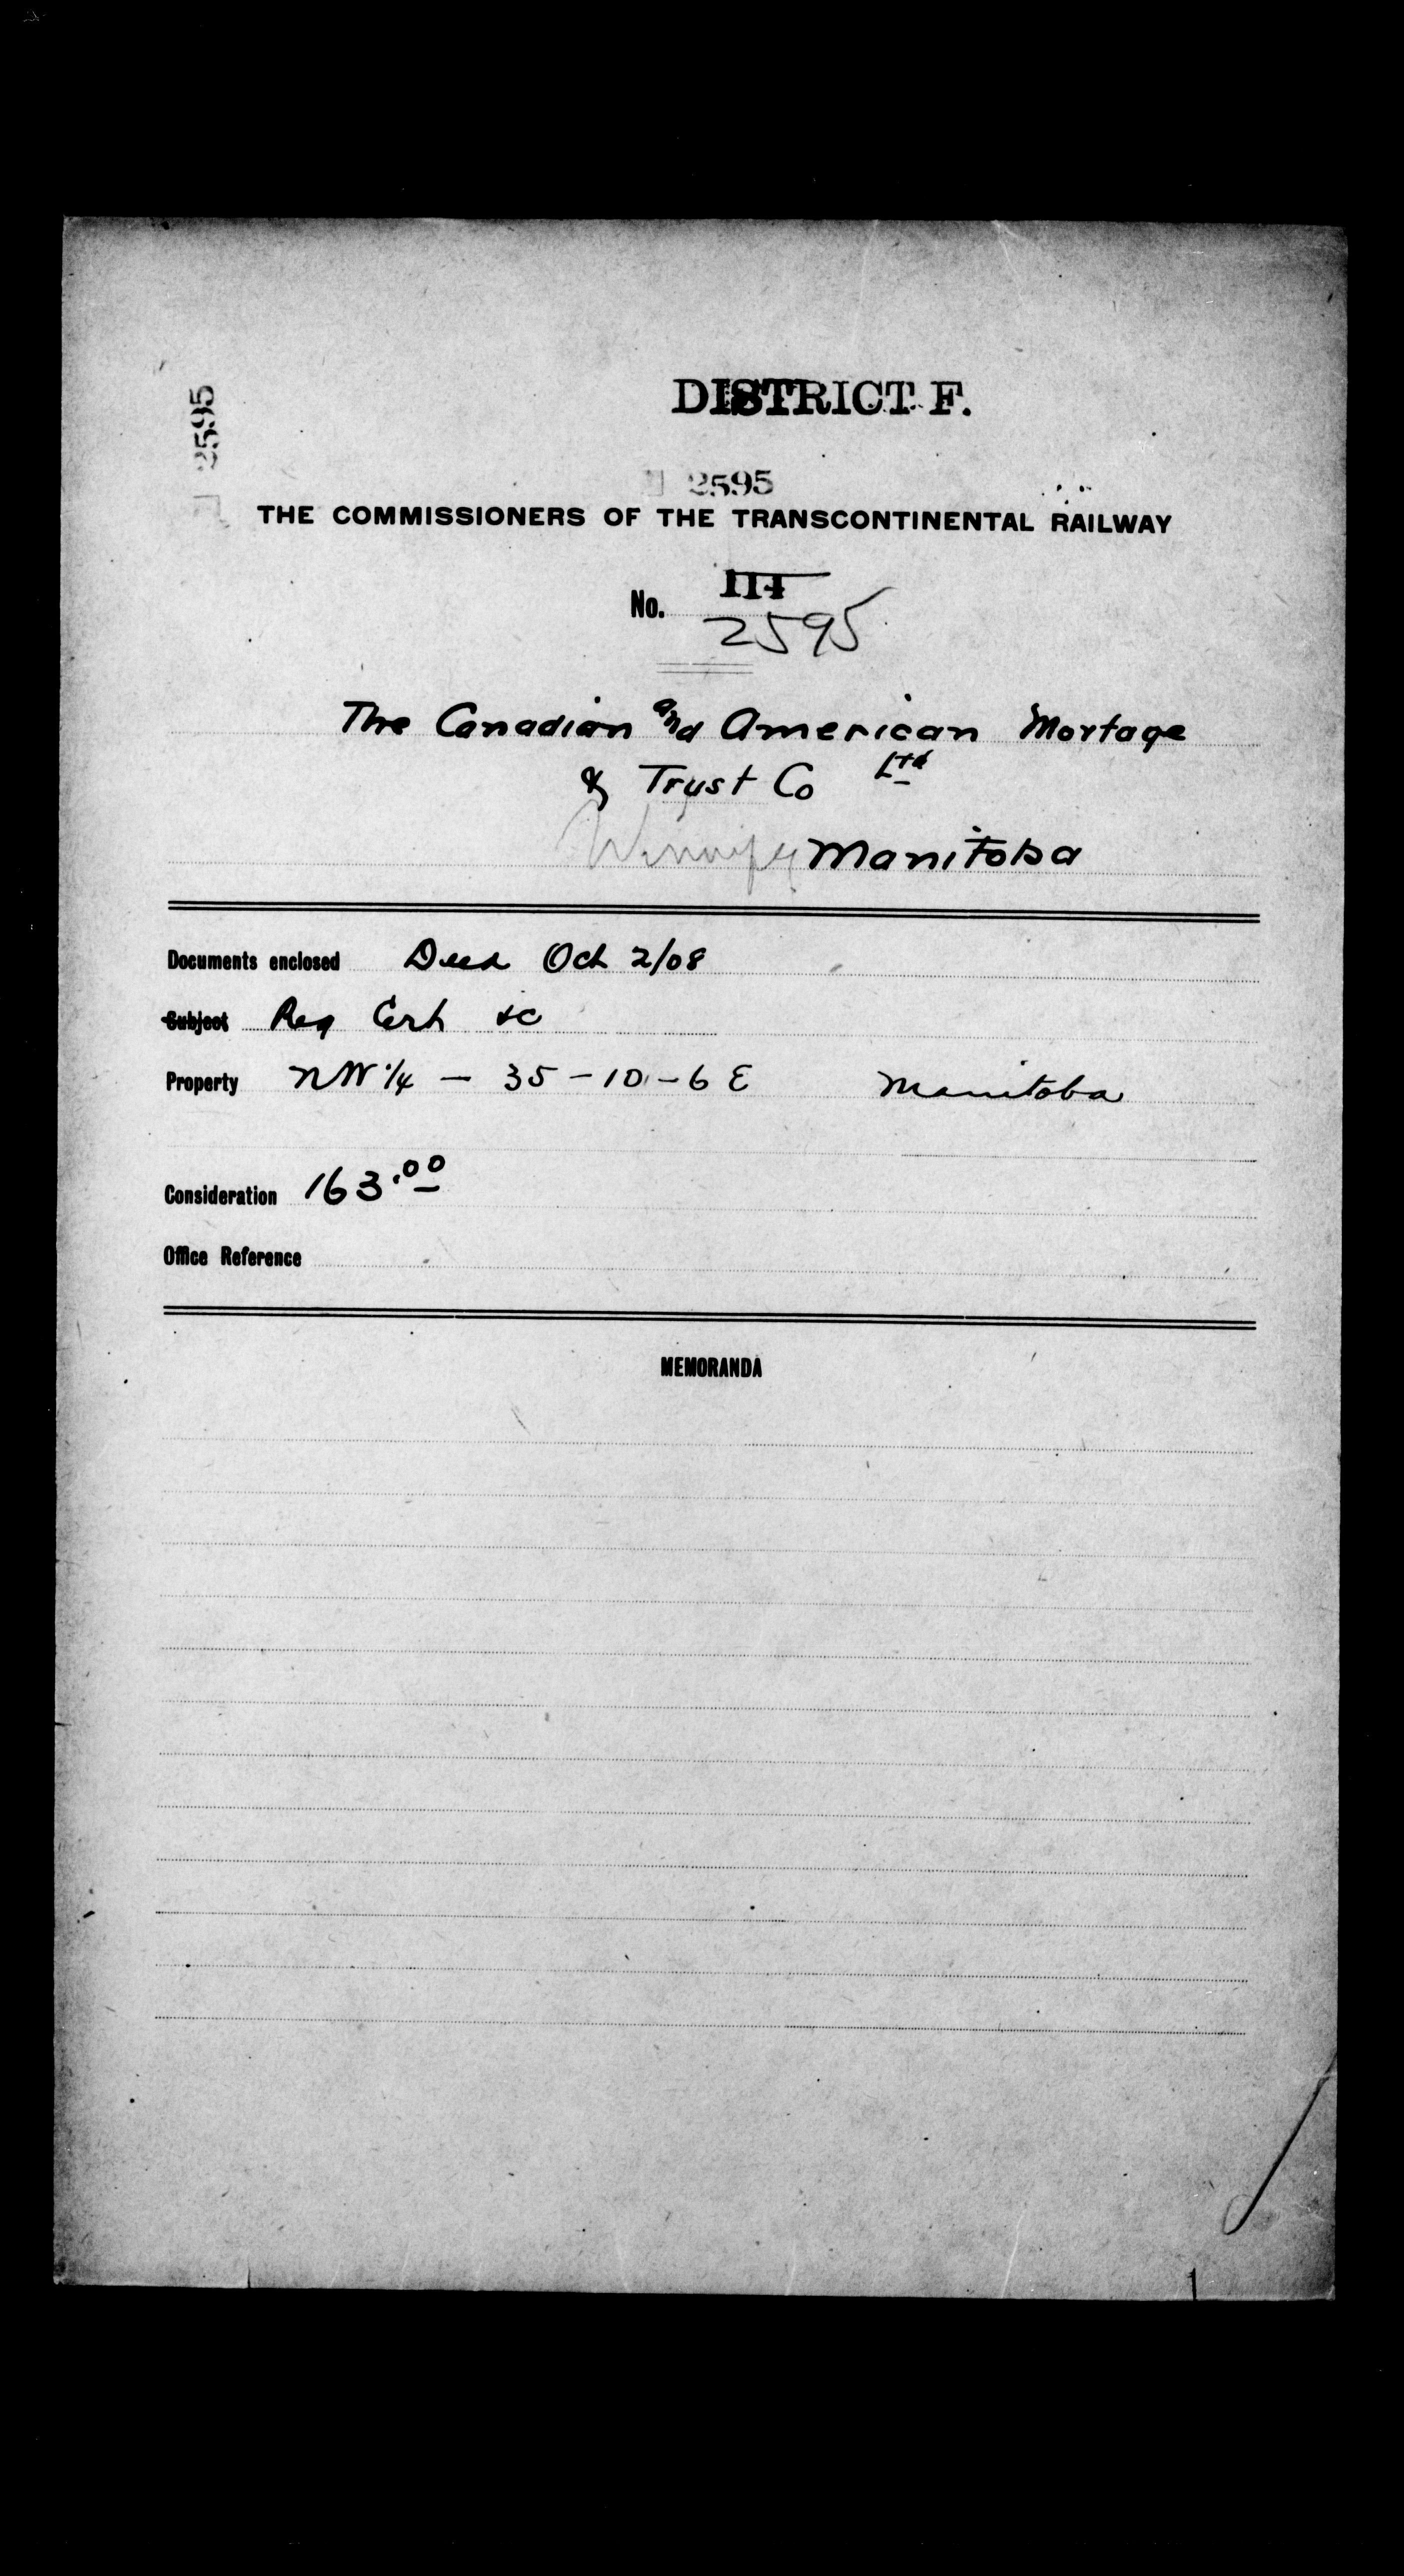 DISTRICT F.
2595
2595
THE COMMISSIONERS OF THE TRANSCONTINENTAL RAILWAY
No. 114
2595
The Canadian and American Mortage
& Trust Co Ltd
Winnipeg Manitoba
Documents enclosed Deed Oct 2/08
Subject Reg Cert &c
Property NW 1/4 - 35 - 10 - 6 E Manitoba
Consideration 163.00
Office Reference
MEMORANDA